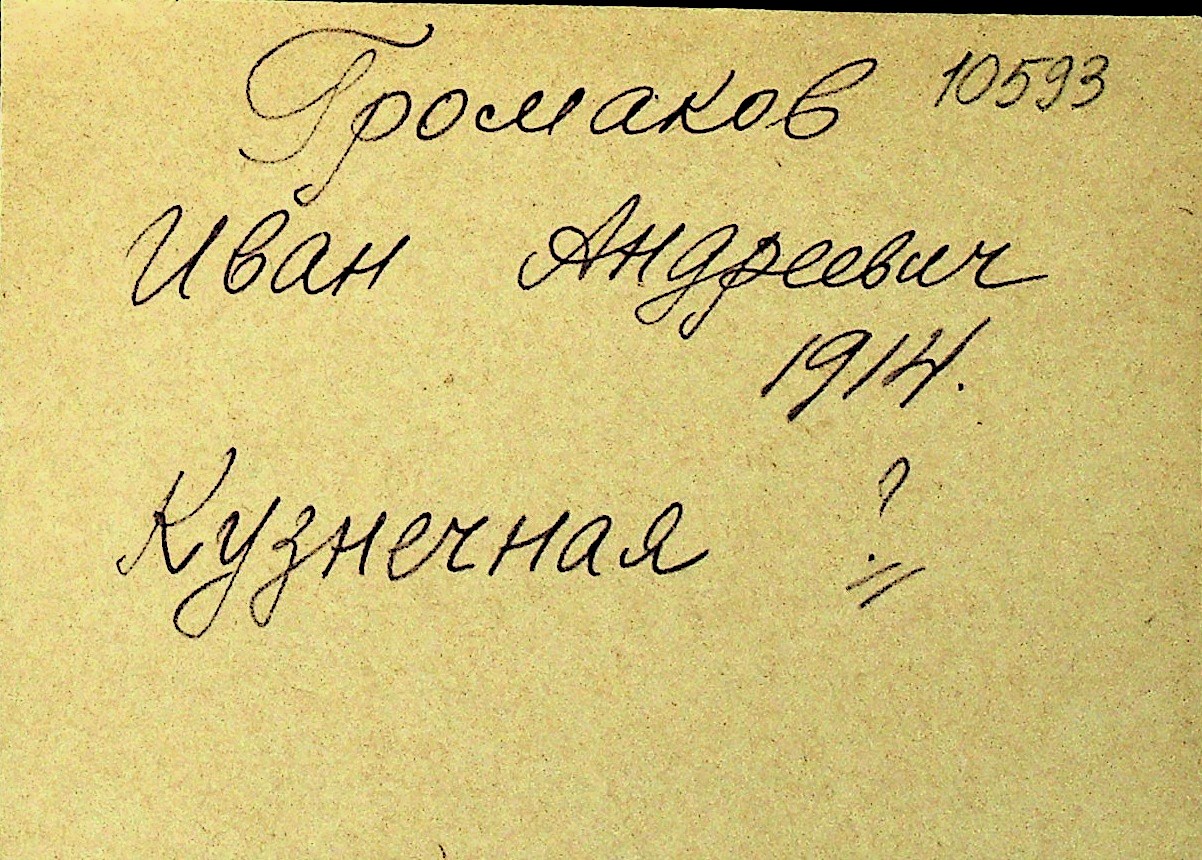 Громаков 10593
Иван Андреевич
1914.
Кузнечная ?